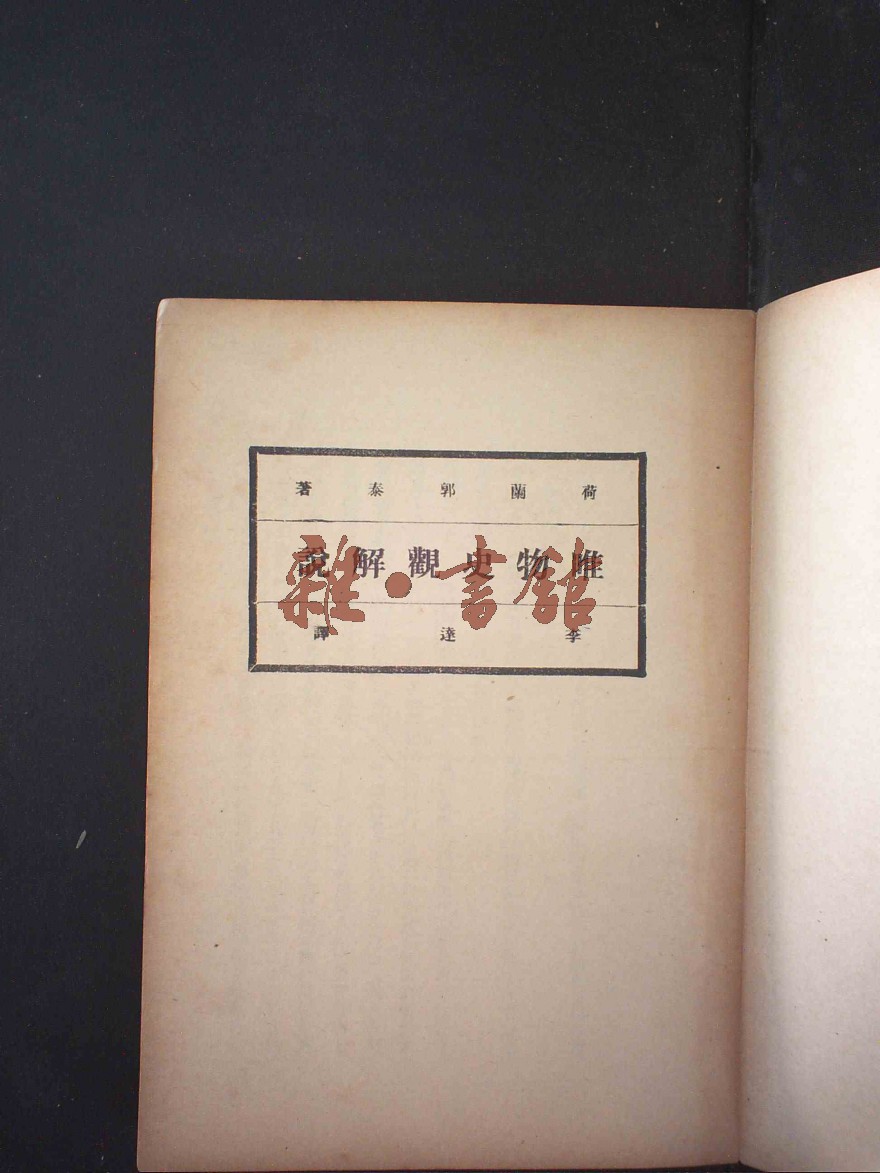 荷蘭郭泰著
唯物史觀解說
李達譯
雜·書館